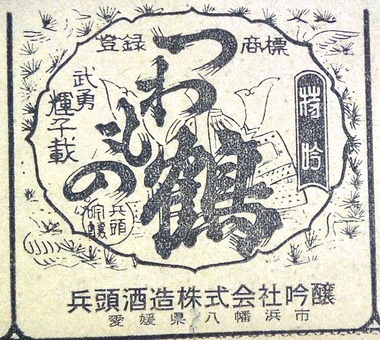 登録商標
つわもの
鶴
特吟
武勇
輝千載
兵頭
兵頭酒造株式会社吟醸
愛媛県八幡浜市